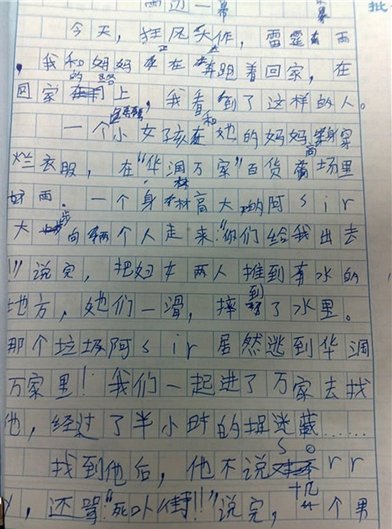 雨边一幕
批
今天，狂风大作，雷霆有雨
，我和妈妈正在奔跑着回家，在
回家的路上，我看到了这样的人。
一个小女孩和她的妈妈身穿
烂衣服，在“华润万家”百货商场里
好雨。一个身材高大的阿sir
大步向两个人走来“你们给我出去
!!!”说完，把妇女两人推到有水的
地方，她们一滑，摔到了水里。
那个垃圾阿sir居然逃到华润
万家里！我们一起进了万家去找
他，经过了半小时的捉迷藏……
找到他后，他不说sorr
y，还骂“死卟街!!”说完，十几个男